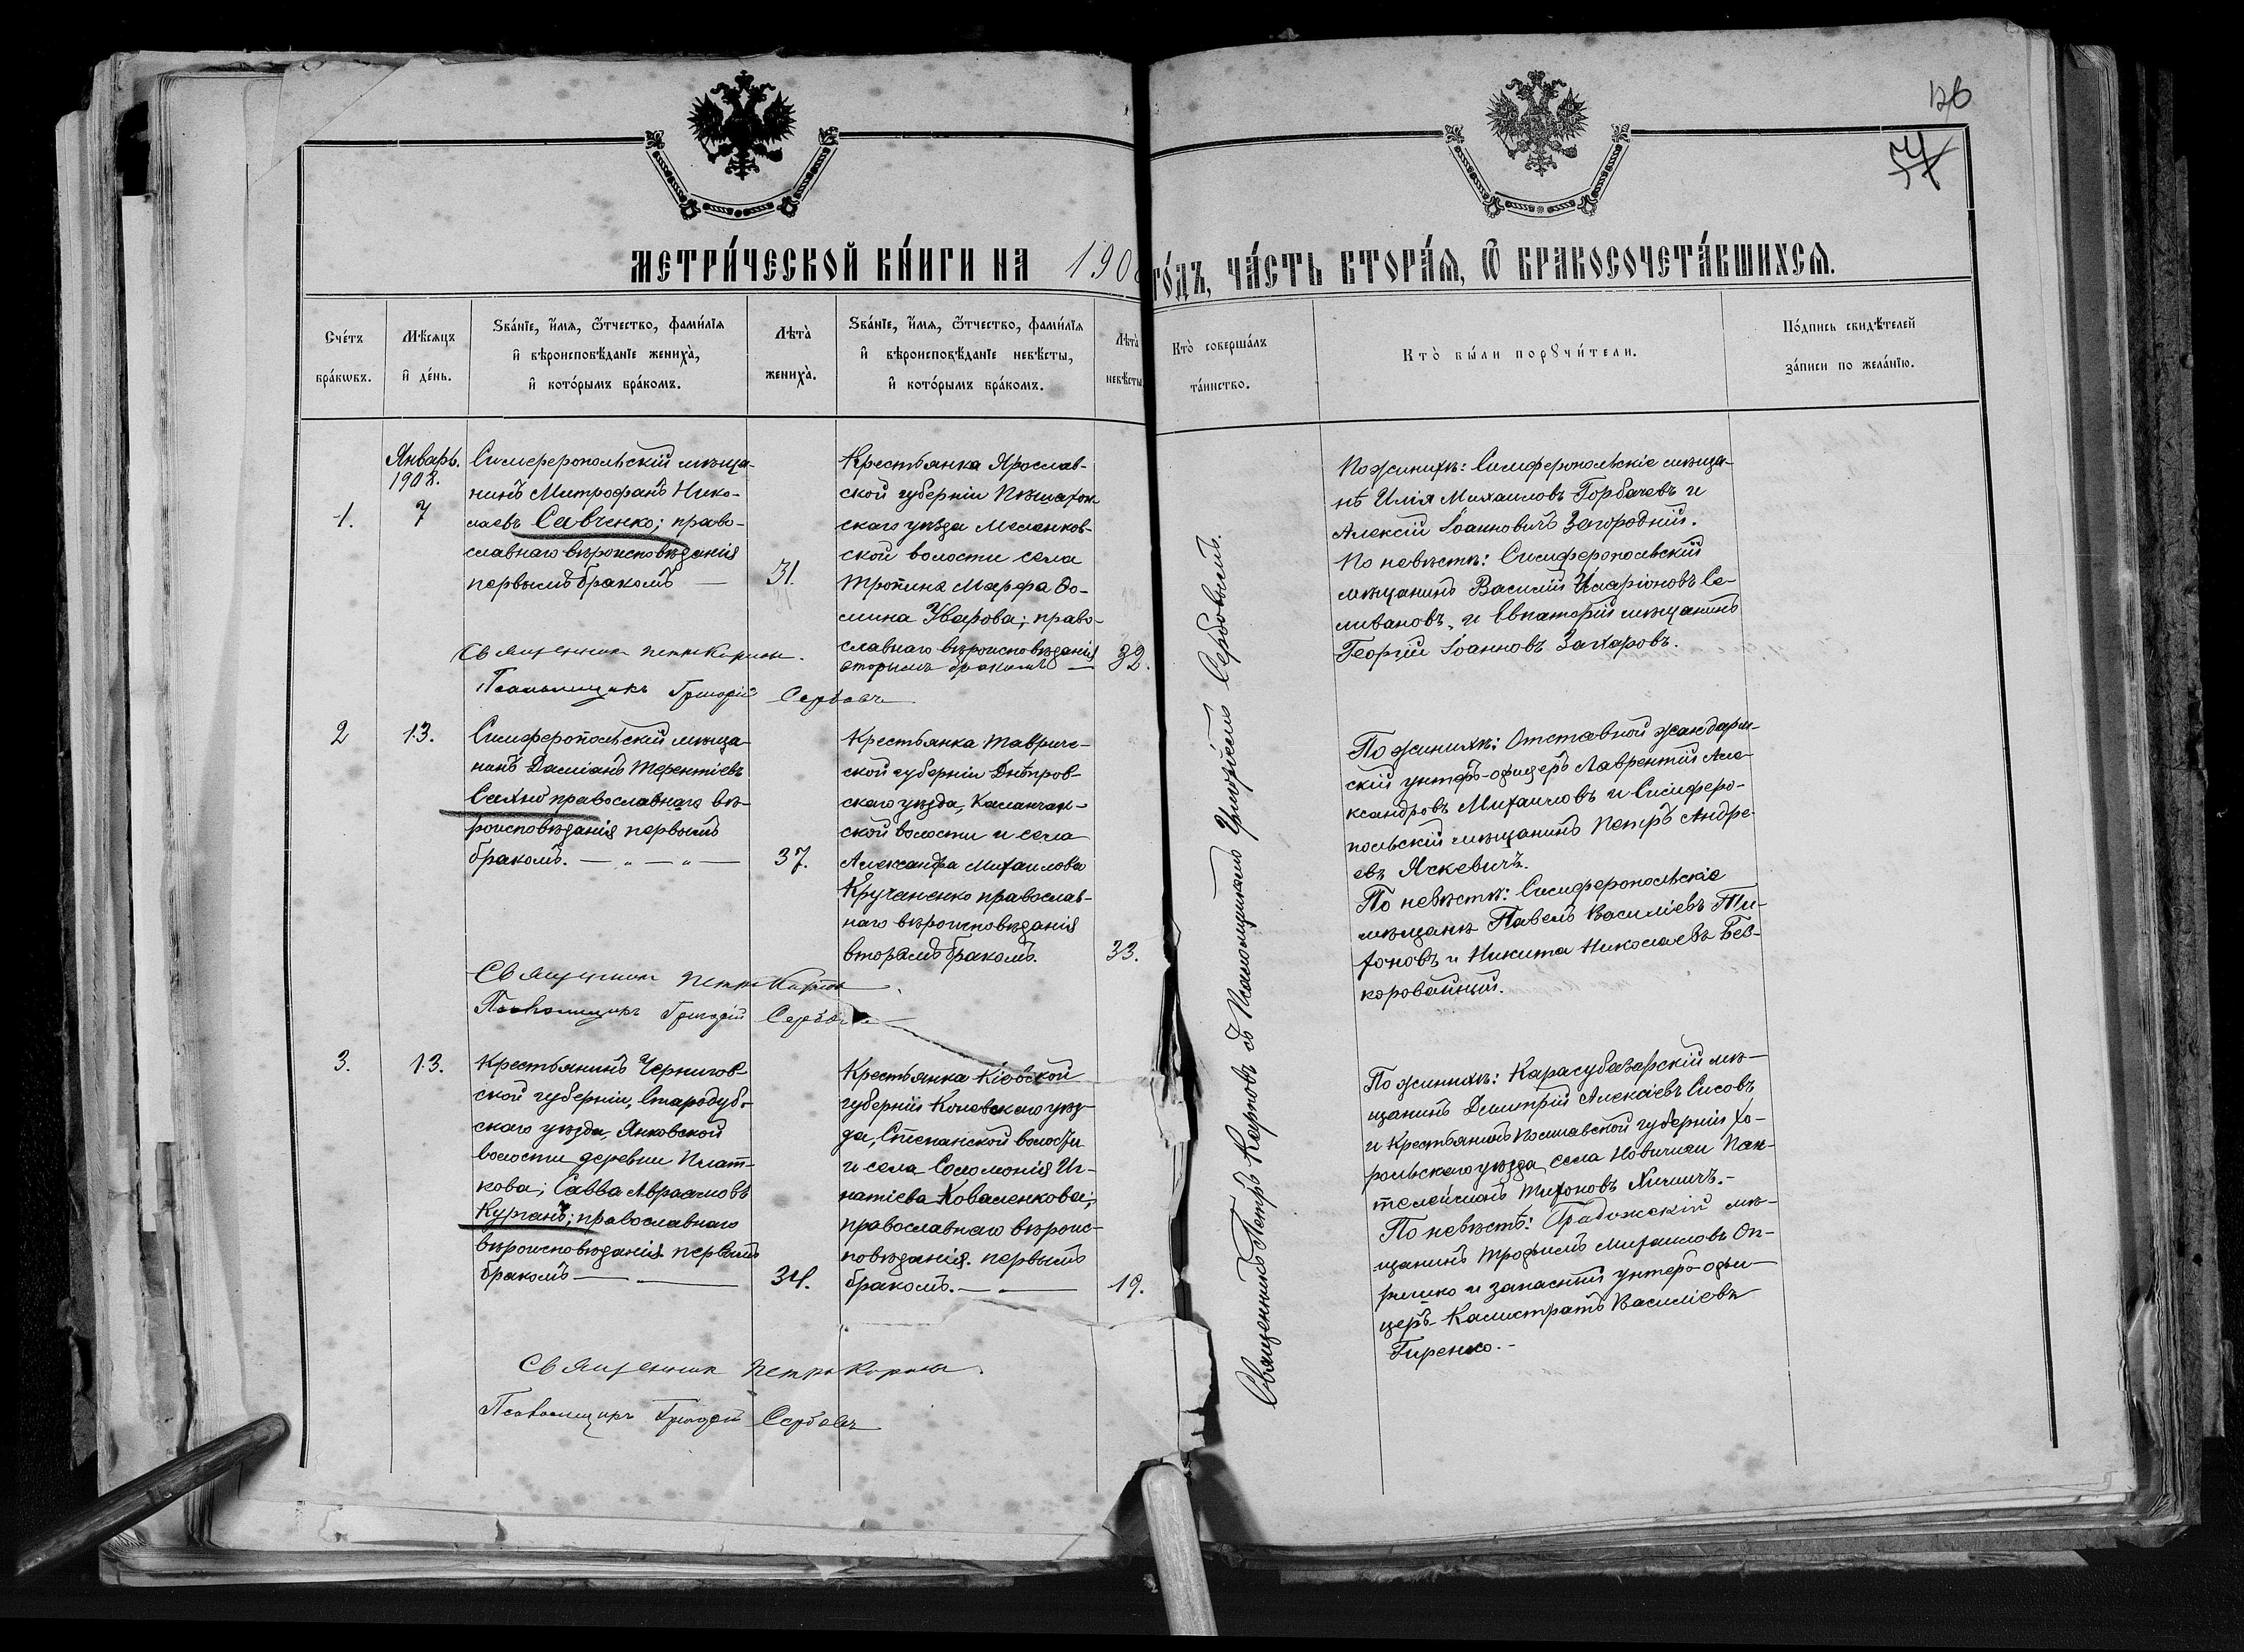 126
74
МЕТРИ́ЧЕСКОЙ КНИ́ГИ НА 1908 ГО́ДЪ, ЧА́СТЬ ВТОРА́Я, Ѿ БРАКОСОЧЕТА́ВШИХСЯ.
Сче́тъ
бра́кѡвъ.
Мѣ́сяцъ
и҆ де́нь.
Ѕва́нїе, и҆́мя, ѻ҆́тчество, фами́лїя
и҆ вѣроисповѣ́данїе жениха̀,
и҆ кото́рымъ бра́комъ.
Лѣта̀
жениха̀.
Ѕва́нїе, и҆́мя, ѻ҆́тчество, фами́лїя
и҆ вѣроисповѣ́данїе невѣ́сты,
и҆ кото́рымъ бра́комъ.
Лѣта̀
невѣ́сты
Кто̀ соверша́лъ
та́инство.
Кто̀ бы́ли порꙋчи́тели.
По́дпись свидѣ́телей
за́писи по жела́нїю.
Январь.
1908.
1.
7
Симферопольскій мѣща-
нинъ Митрофанъ Нико-
лаевъ Савченко; право-
славнаго вѣроисповѣданія
первымъ бракомъ —
31.
Крестьянка Ярослав-
ской губерніи Пошехон-
скаго уѣзда
ской волости села
Тропина Марфа Ѳо-
мина Уварова; право-
славнаго вѣроисповѣданія
вторымъ бракомъ —
32.
По жинихѣ: Симферопольскіе мѣща-
нѣ Илія Михаиловъ Горбачевъ и
Алексій Іоанновичъ Загородній.
По невѣстѣ: Симферопольскій
мѣщанинъ Василій Иларіоновъ Се-
ливановъ, и Евпаторій мѣщанинъ
Георгій Іоанновъ Захаровъ.
Священникъ Петръ Карповъ.
Псаломщикъ Григорій Сербовъ
2
13.
Симферопольскій мѣща-
нинъ Даміанъ Терентіевъ
Сахно православнаго вѣ-
роисповѣданія первымъ
бракомъ. — „ — „ —
37.
Крестьянка Тавриче-
ской губерніи Днѣпров-
скаго уѣзда, Каланчак-
ской волости и села
Александра Михаилова
Кручаненко православ-
наго вѣроисповѣданія
вторымъ бракомъ.
33.
По жинихѣ: Отставной жандарм-
скій унтеръ-офицеръ Лаврентій Але-
ксандровъ Михаиловъ и Симферо-
польскій мѣщанинъ Петръ Андре-
евъ Яскевичъ.
По невѣстѣ: Симферопольскіе
мѣщанѣ Павелъ Василіевъ Ти-
хоновъ и Никита Николаевъ Без-
коровайный.
Священникъ Петръ Карповъ
Псаломщикъ Григорій Сербовъ
3.
13.
Крестьянинъ Чернигов-
ской губерніи, Стародуб-
скаго уѣзда, Янковской
волости деревни Плат-
кова; Савва Авраамовъ
Курганъ; православнаго
вѣроисповѣданія первымъ
бракомъ — —
34.
Крестьянка Кіевской
губерніи Каневскаго уѣз-
да, Степанской волости
и села Соломонія Иг-
натіева Коваленкова;
православнаго вѣроис-
повѣданія. первымъ
бракомъ. — —
19.
По жинихѣ: Карасубазарскій мѣ-
щанинъ Димитрій Сисовъ
и Крестьянинъ Полтавской губерніи Хо-
рольскаго уѣзда, села Пан-
телеймонъ Тихоновъ
По невѣстѣ: Градижскій мѣ-
щанинъ Трофимъ Михаиловъ Оп-
ришко и запасный унтеръ-офи-
церъ Калистратъ Василіевъ
Гиренко.-
Священникъ Петръ Карповъ.
Псаломщикъ Григорій Сербовъ
Священникъ Петръ Карповъ съ Псаломщикомъ Григоріемъ Сербовымъ.